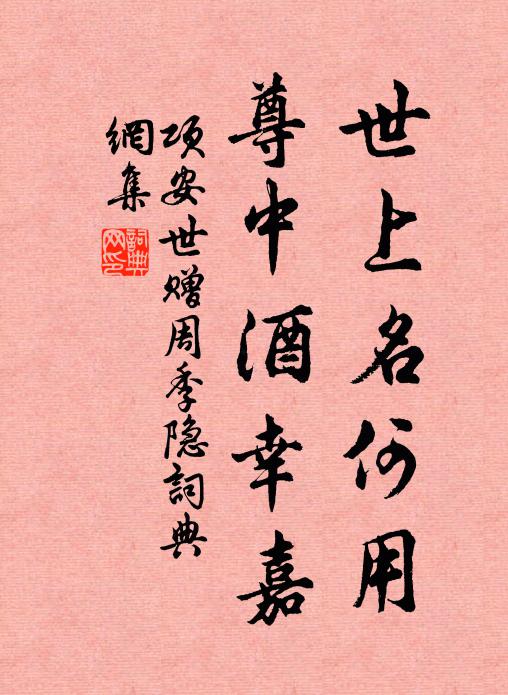 世上名何用
尊中酒幸嘉
项安世赠周季隐詞典
網集
詞典
网印